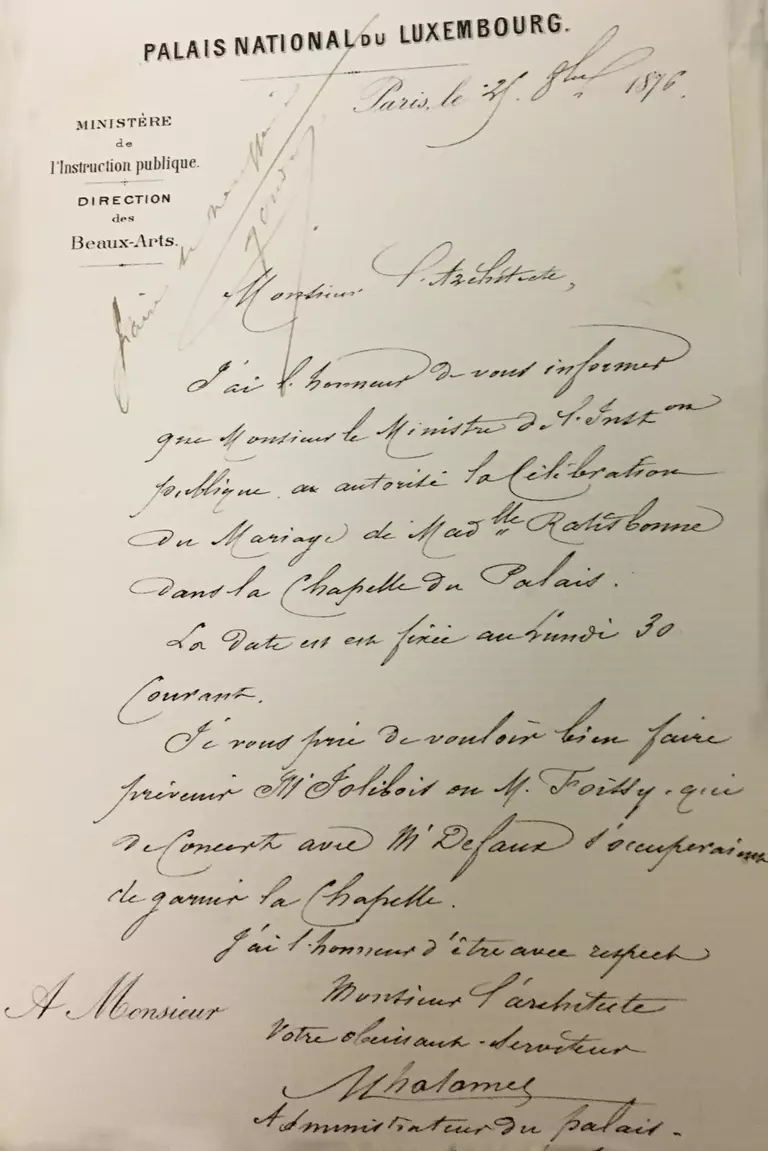 PALAIS NATIONAL DU LUXEMBOURG.
Paris, le 25. 8bre 1876.
MINISTÈRE
de
l'Instruction publique.
DIRECTION
des
Beaux-Arts.
faire
Monsieur l'Architecte,
J'ai l'honneur de vous informer
que Monsieur le Ministre de l'Inston
publique a autorisé la Célébration
du Mariage de Madlle Ratisbonne
dans la Chapelle du Palais.
La date est fixée au Lundi 30
Courant.
Je vous prie de vouloir bien faire
prévenir Mr Jolibois ou M. Foissy, qui
de Concert avec Mr Defaux s'occuperaient
de garnir la Chapelle.
J'ai l'honneur d'être avec respect
Monsieur l'architecte
Votre obéissant Serviteur
A Monsieur
Administrateur du palais.